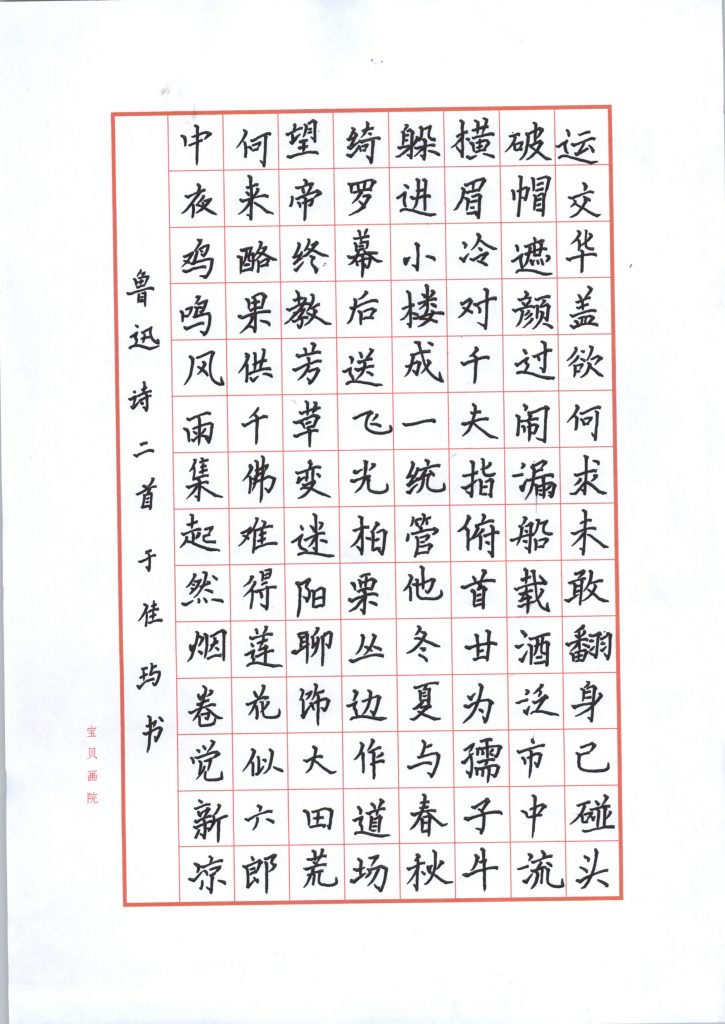 运交华盖欲何求未敢翻身已碰头
破帽遮颜过闹漏船载酒泛市中流
横眉冷对千夫指俯首甘为孺子牛
躲进小楼成一统管他冬夏与春秋
绮罗幕后送飞光柏栗丛边作道场
望帝终教芳草变迷阳聊饰大田荒
何来酪果供千佛难得莲花似六郎
中夜鸡鸣风雨集起然烟卷觉新凉
鲁迅诗二首于佳玙书
宝贝画院